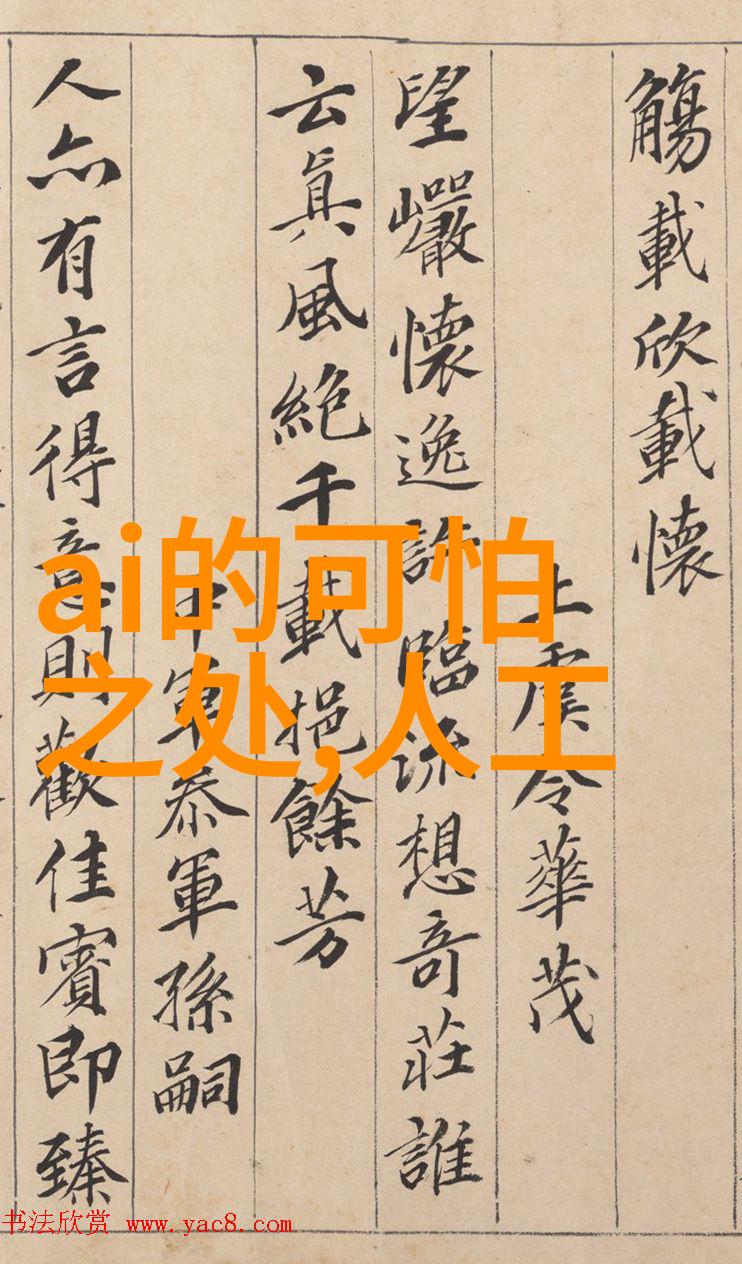 觴載欣載懷
上虞令華茂
望巖懷逸許臨流想奇莊誰
云真風絶千載挹餘芳
中軍参軍孫嗣
人亦有言得意則歡佳賓即臻
ai的可怕
之处,人工
书法欣赏 www.yac8.com